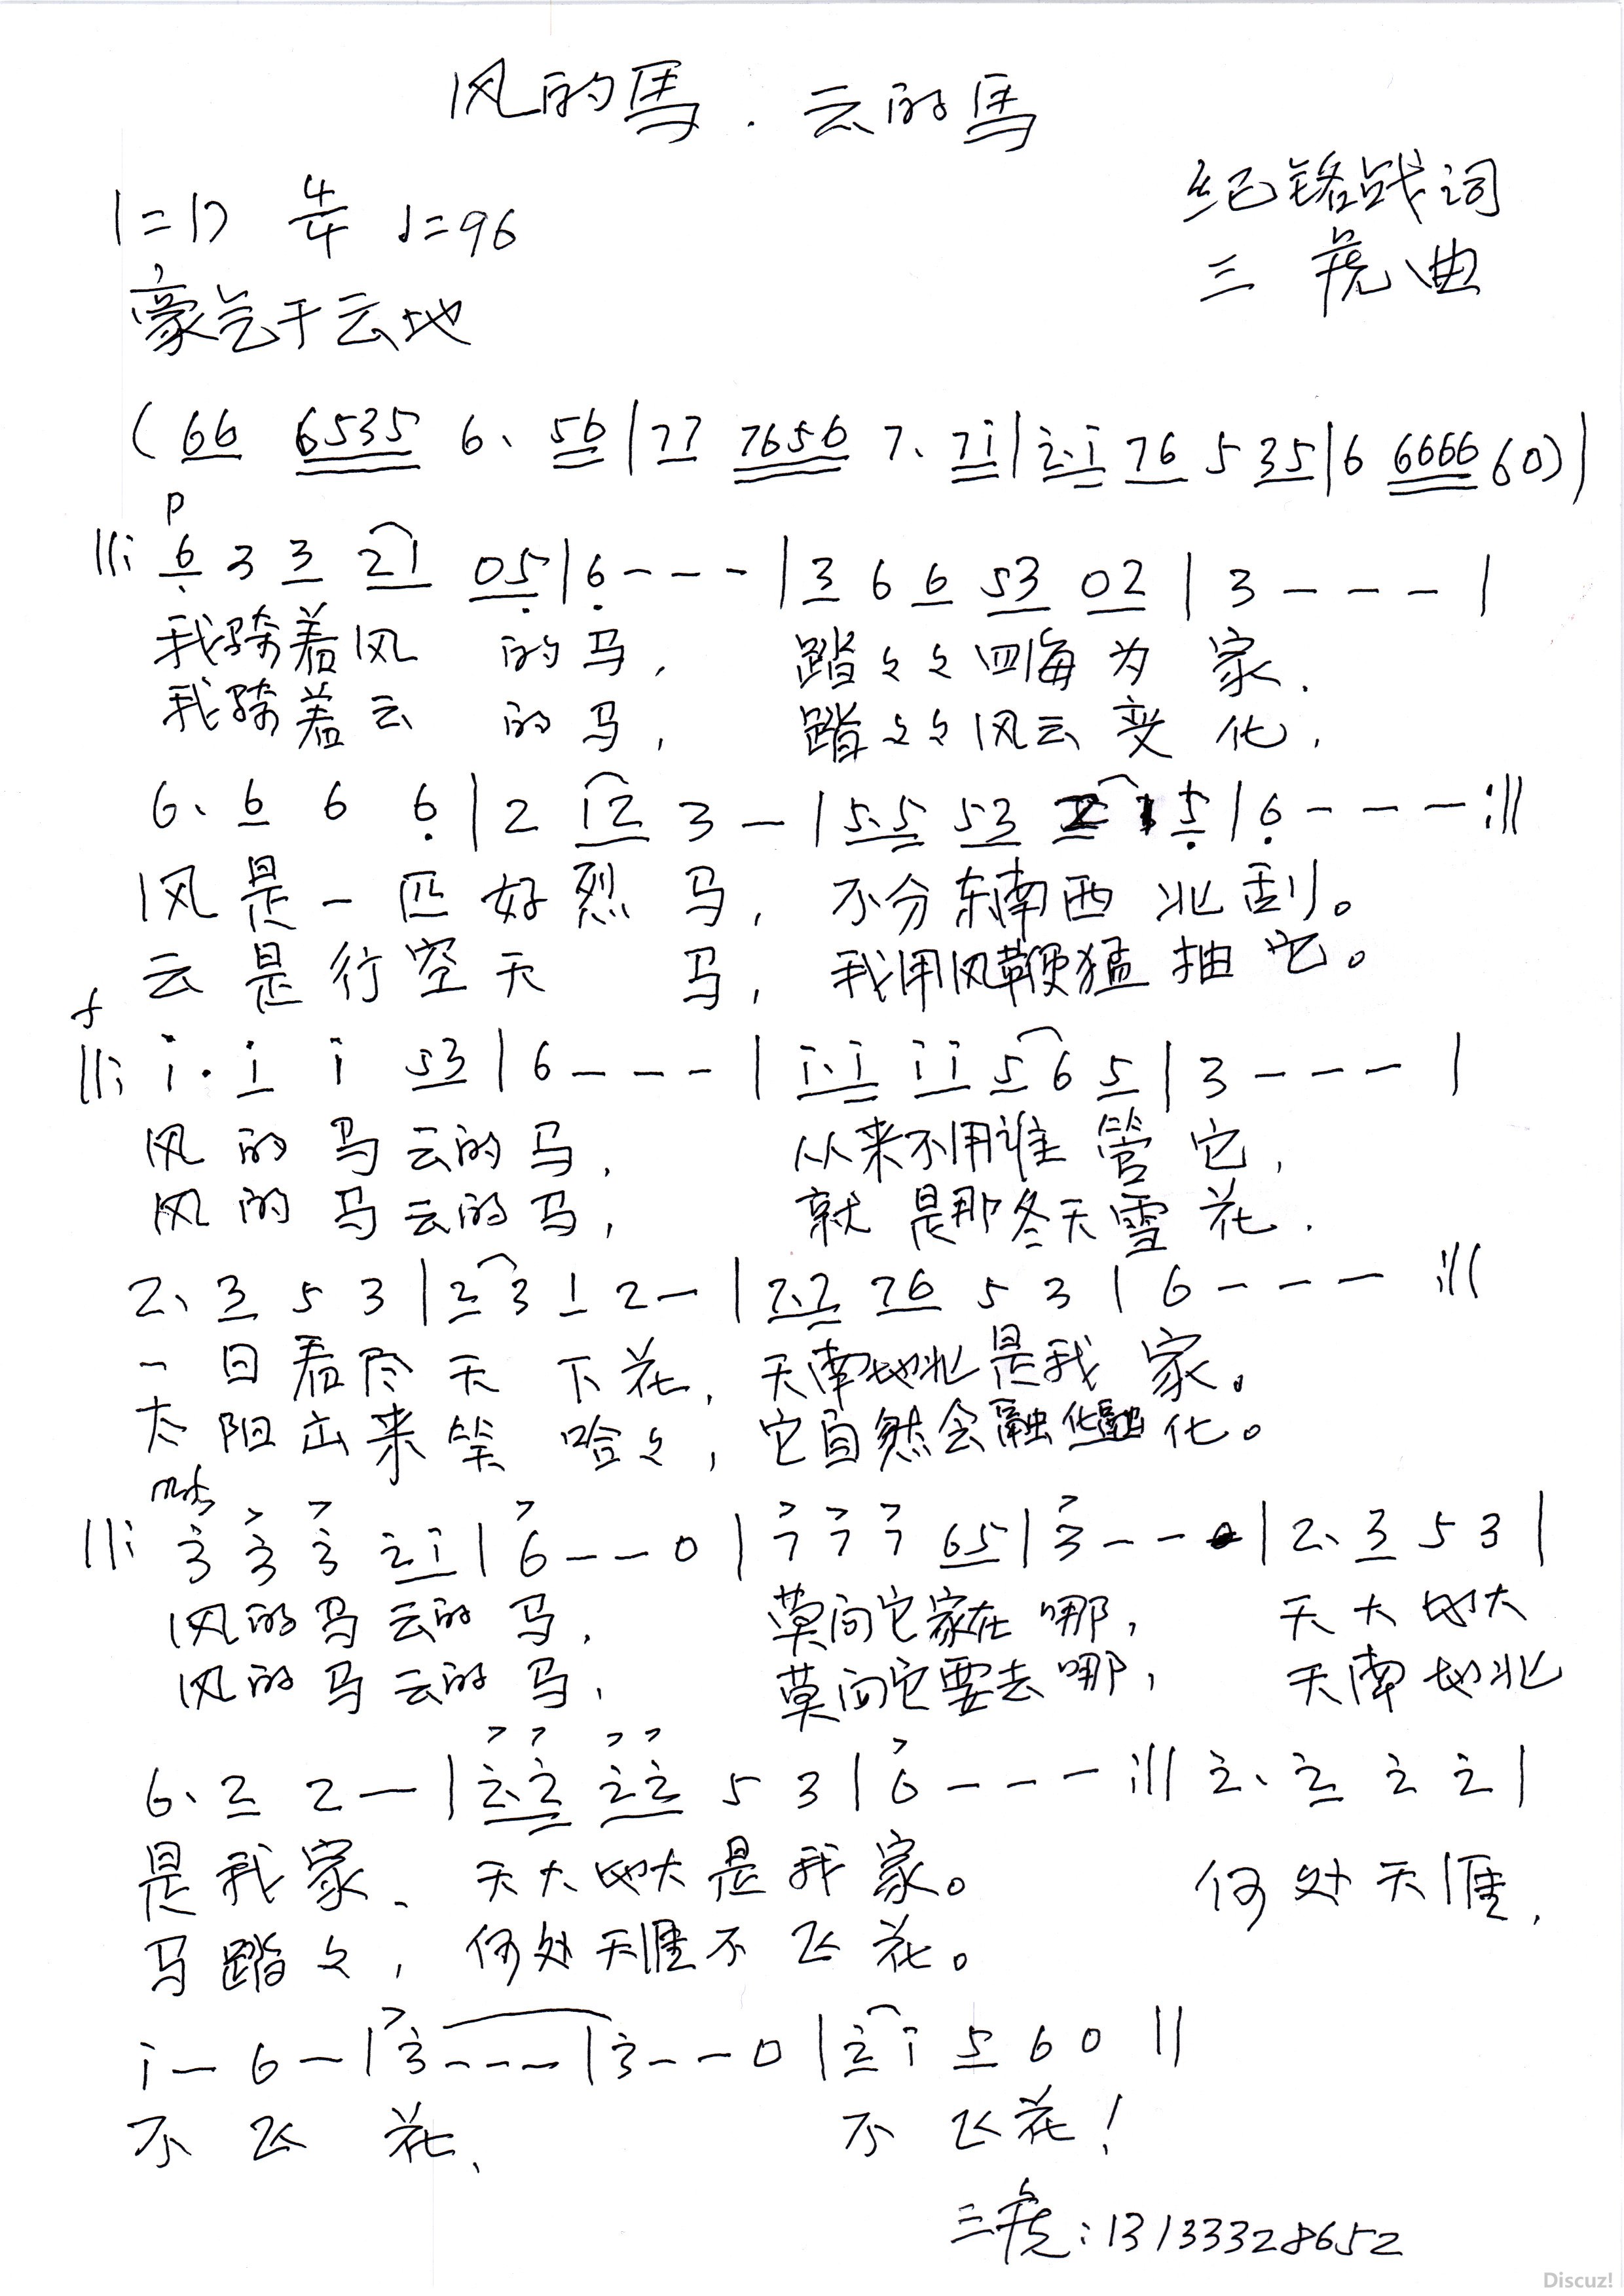 风的馬.云的馬
纪铭战词
1=D 4/4 ♩=96
三虎曲
豪气于云地
(66 6535 6. 56|77 7656 7. 7i|2.i 76 5 35|6 6666 60)|
p
||: 6 3 3 21 05|6---|3 6 6 53 02|3---|
我骑着风的马, 踏々々四海为家.
我骑着云的马, 踏々々风云变化,
6. 6 6 6|2 12 3-|5.5 53 2 1 5|6---:||
风是一匹好烈马, 不分东南西北刮。
云是行空天马, 我用风鞭猛抽它。
f
||: i. i i 53|6---|i.i ii 5 6 5|3---|
风的马云的马, 从来不用谁管它,
风的马云的马, 就是那冬天雪花.
2. 3 5 3|2 3 1 2-|7.7 76 5 3|6---:||
一日看尽天下花, 天南地北是我家。
太阳出来笑哈々, 它自然会融化融化。
||: 3 3 3 2i|6--0|7 7 7 65|3--0|2. 3 5 3|
风的马云的马, 莫问它家在哪, 天大地大
风的马云的马, 莫问它要去哪, 天南地北
6. 2 2-|2.2 22 5 3|6---:|| 2. 2 2 2|
是我家、天大地大是我家。 何处天涯,
马踏々, 何处天涯不飞花。
i-6-|3---|3--0|2 i 5 6 0||
不飞花、 不飞花!
三虎:13133328652
Discuz!